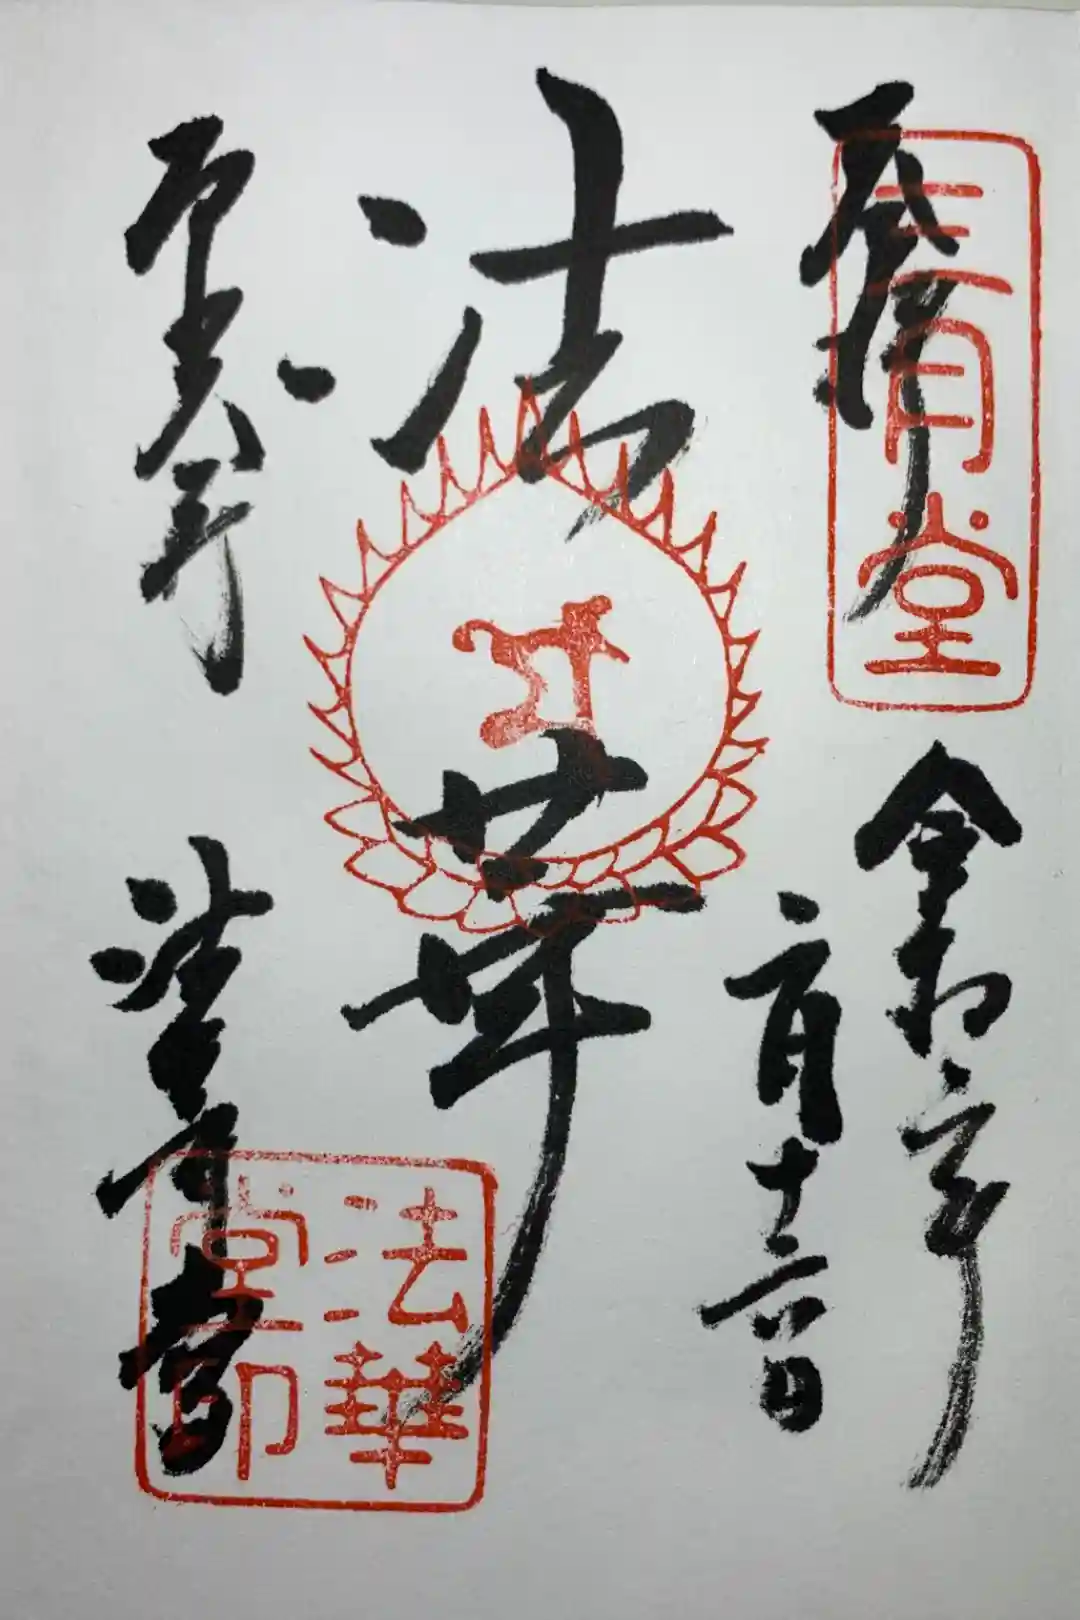 奉拝
三月堂
令和二年
二月十六日
法華
東大寺
法華堂
法華
堂印